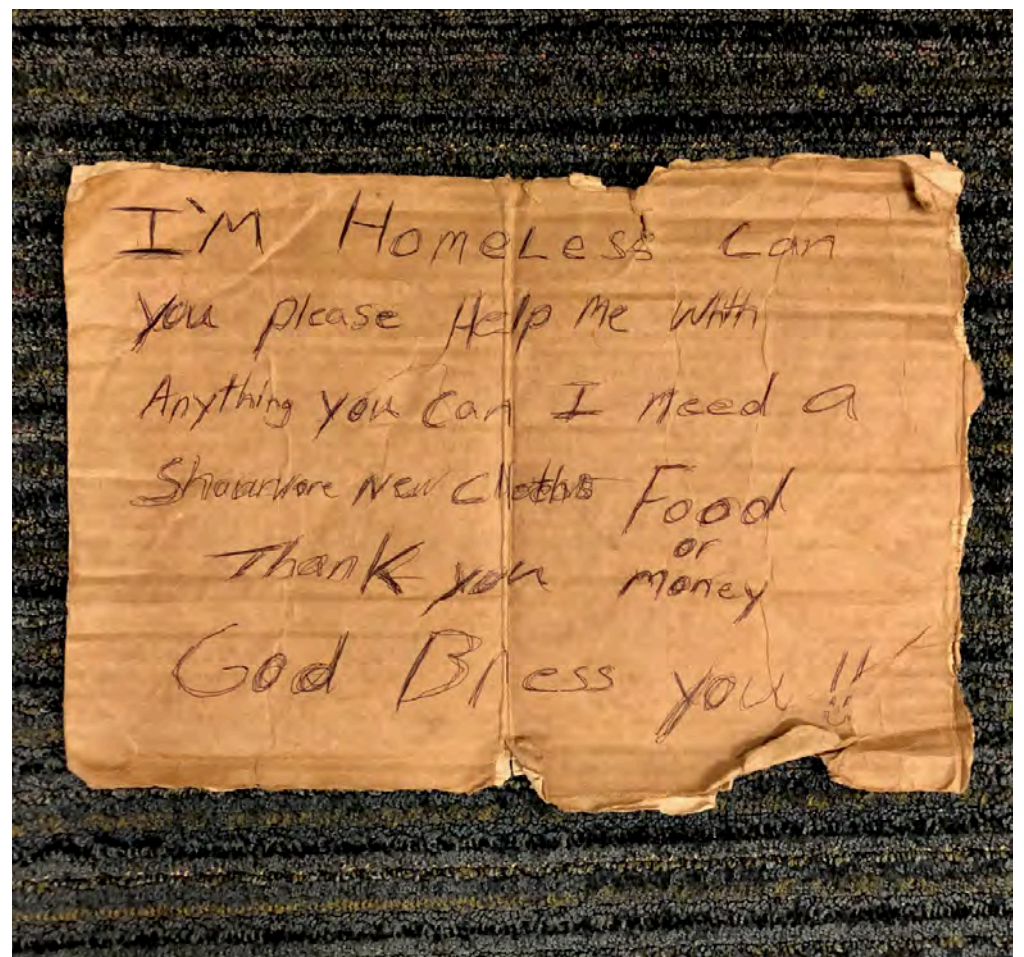 I'M HomeLess Can
you please Help Me With
Anything you Can I need a
New Cloths Food
or
Thank you money
God Bless you !!